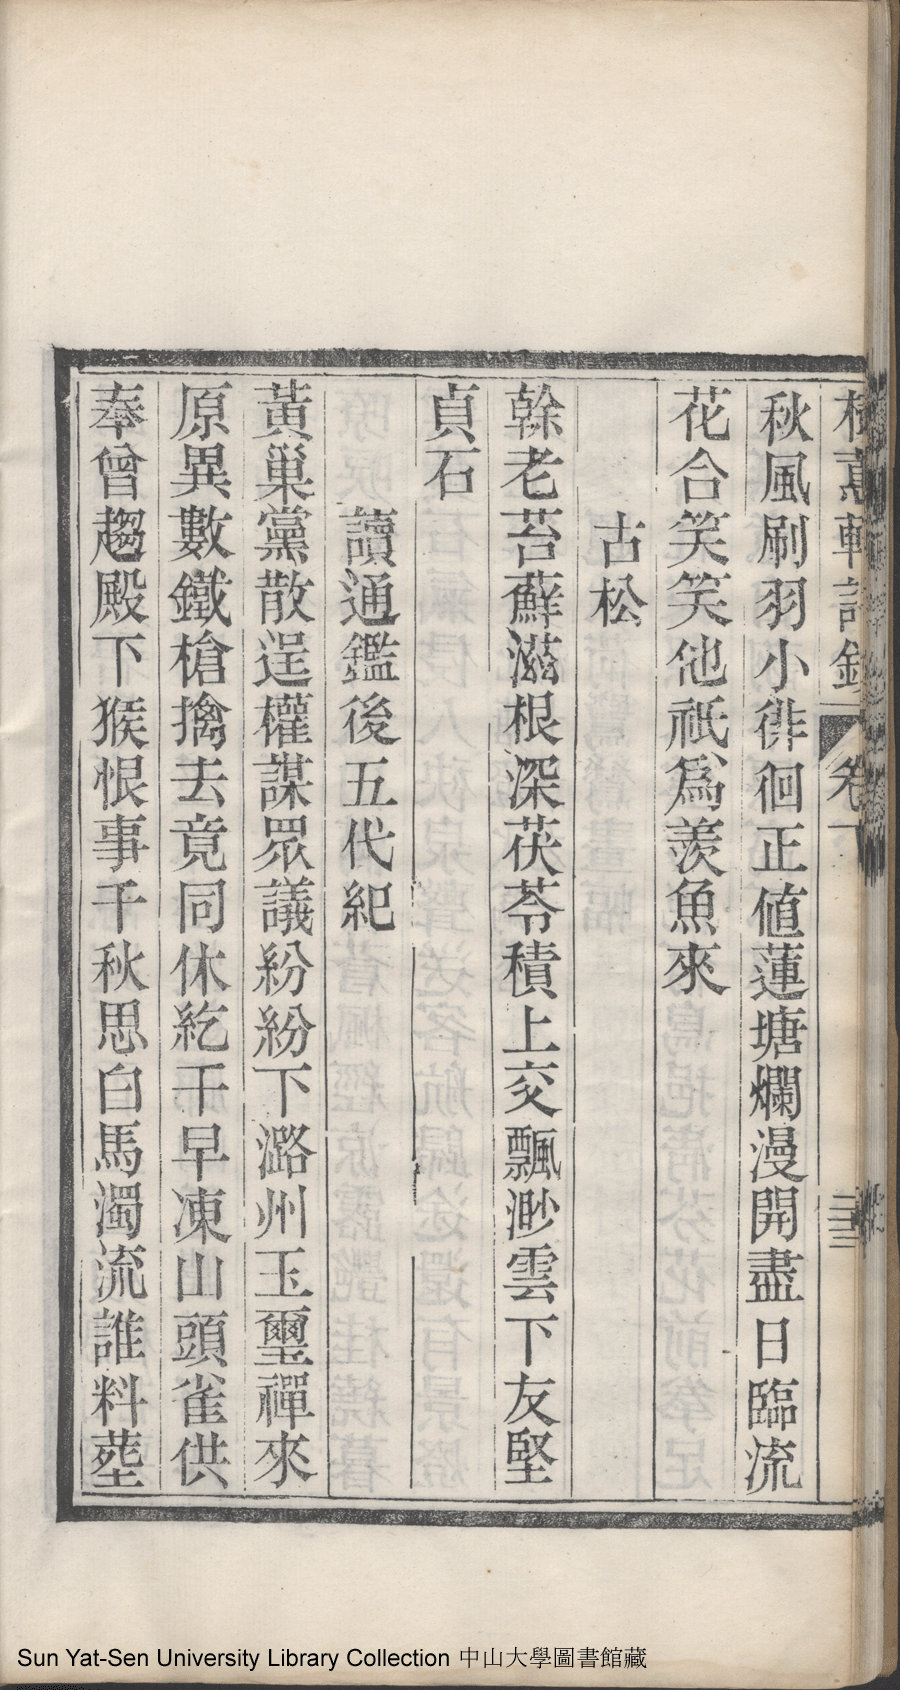 秋風刷羽小徘徊正値蓮塘爛漫開盡日臨流
花合笑笑他祇爲羨魚來
古松
幹老苔蘚滋根深茯苓積上交飄渺雲下友堅
貞石
讀通鑑後五代紀
黃巢黨散逞權謀眾議紛紛下潞州玉璽禪來
原異數鐵槍擒去竟同休紇干早凍山頭雀供
奉曾趨殿下猴恨事千秋思白馬濁流誰料葬
Sun Yat-Sen University Library Collection 中山大學圖書館藏